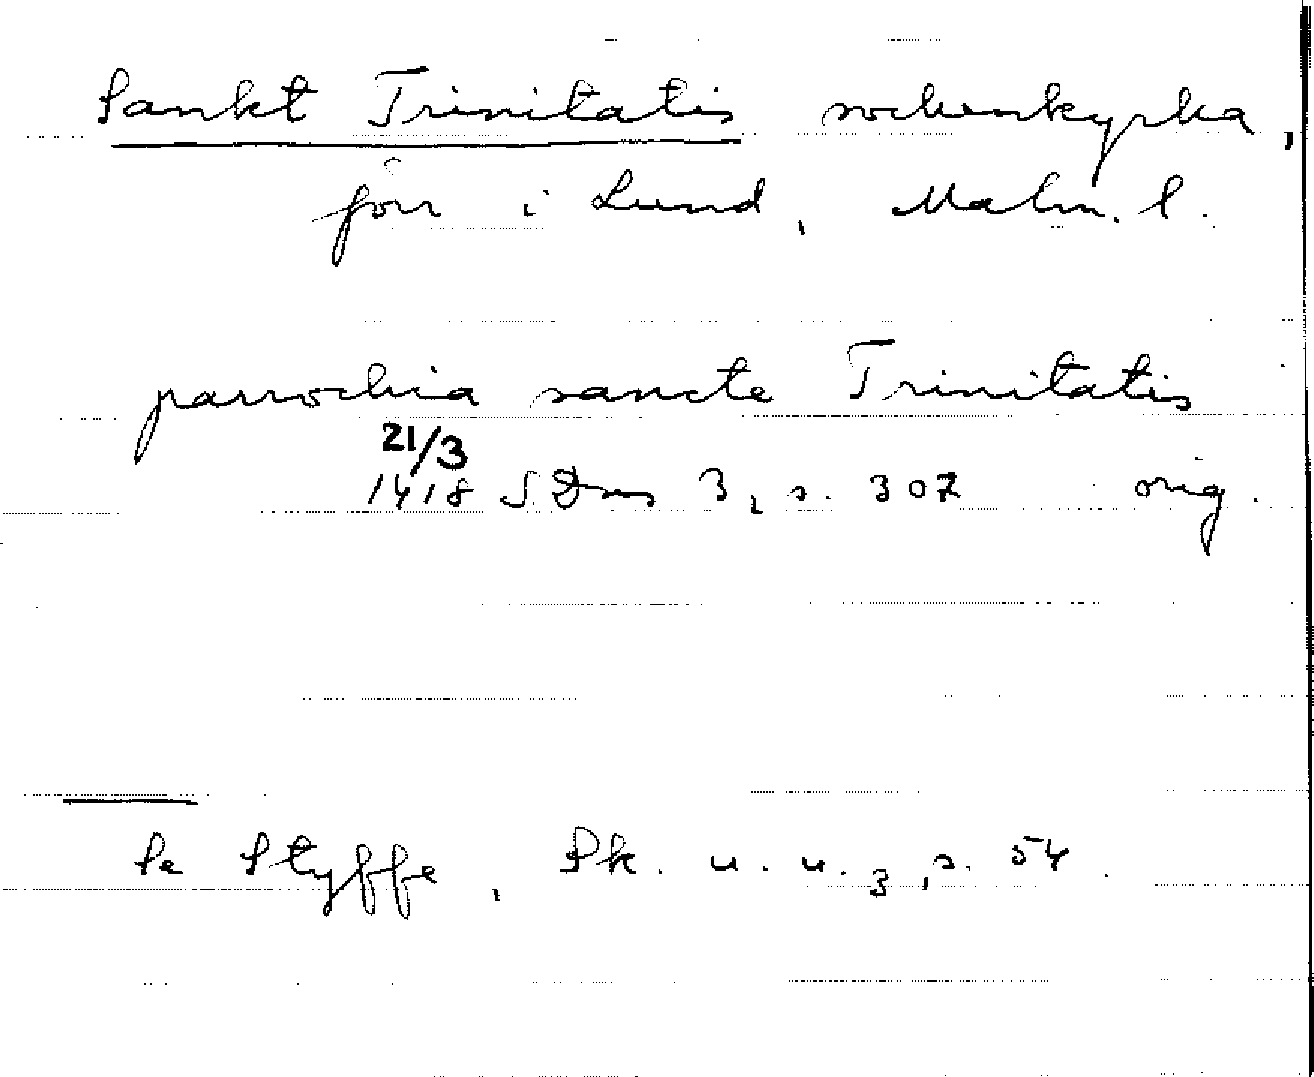 Sankt Trinitatis sockenkyrka,
förr i Lund, Malm. l.
parrochia sancte Trinitatis
21/3
1418 SDns 3, s. 307 orig.
Se Styffe, Sk. u. u. 3, s. 54.